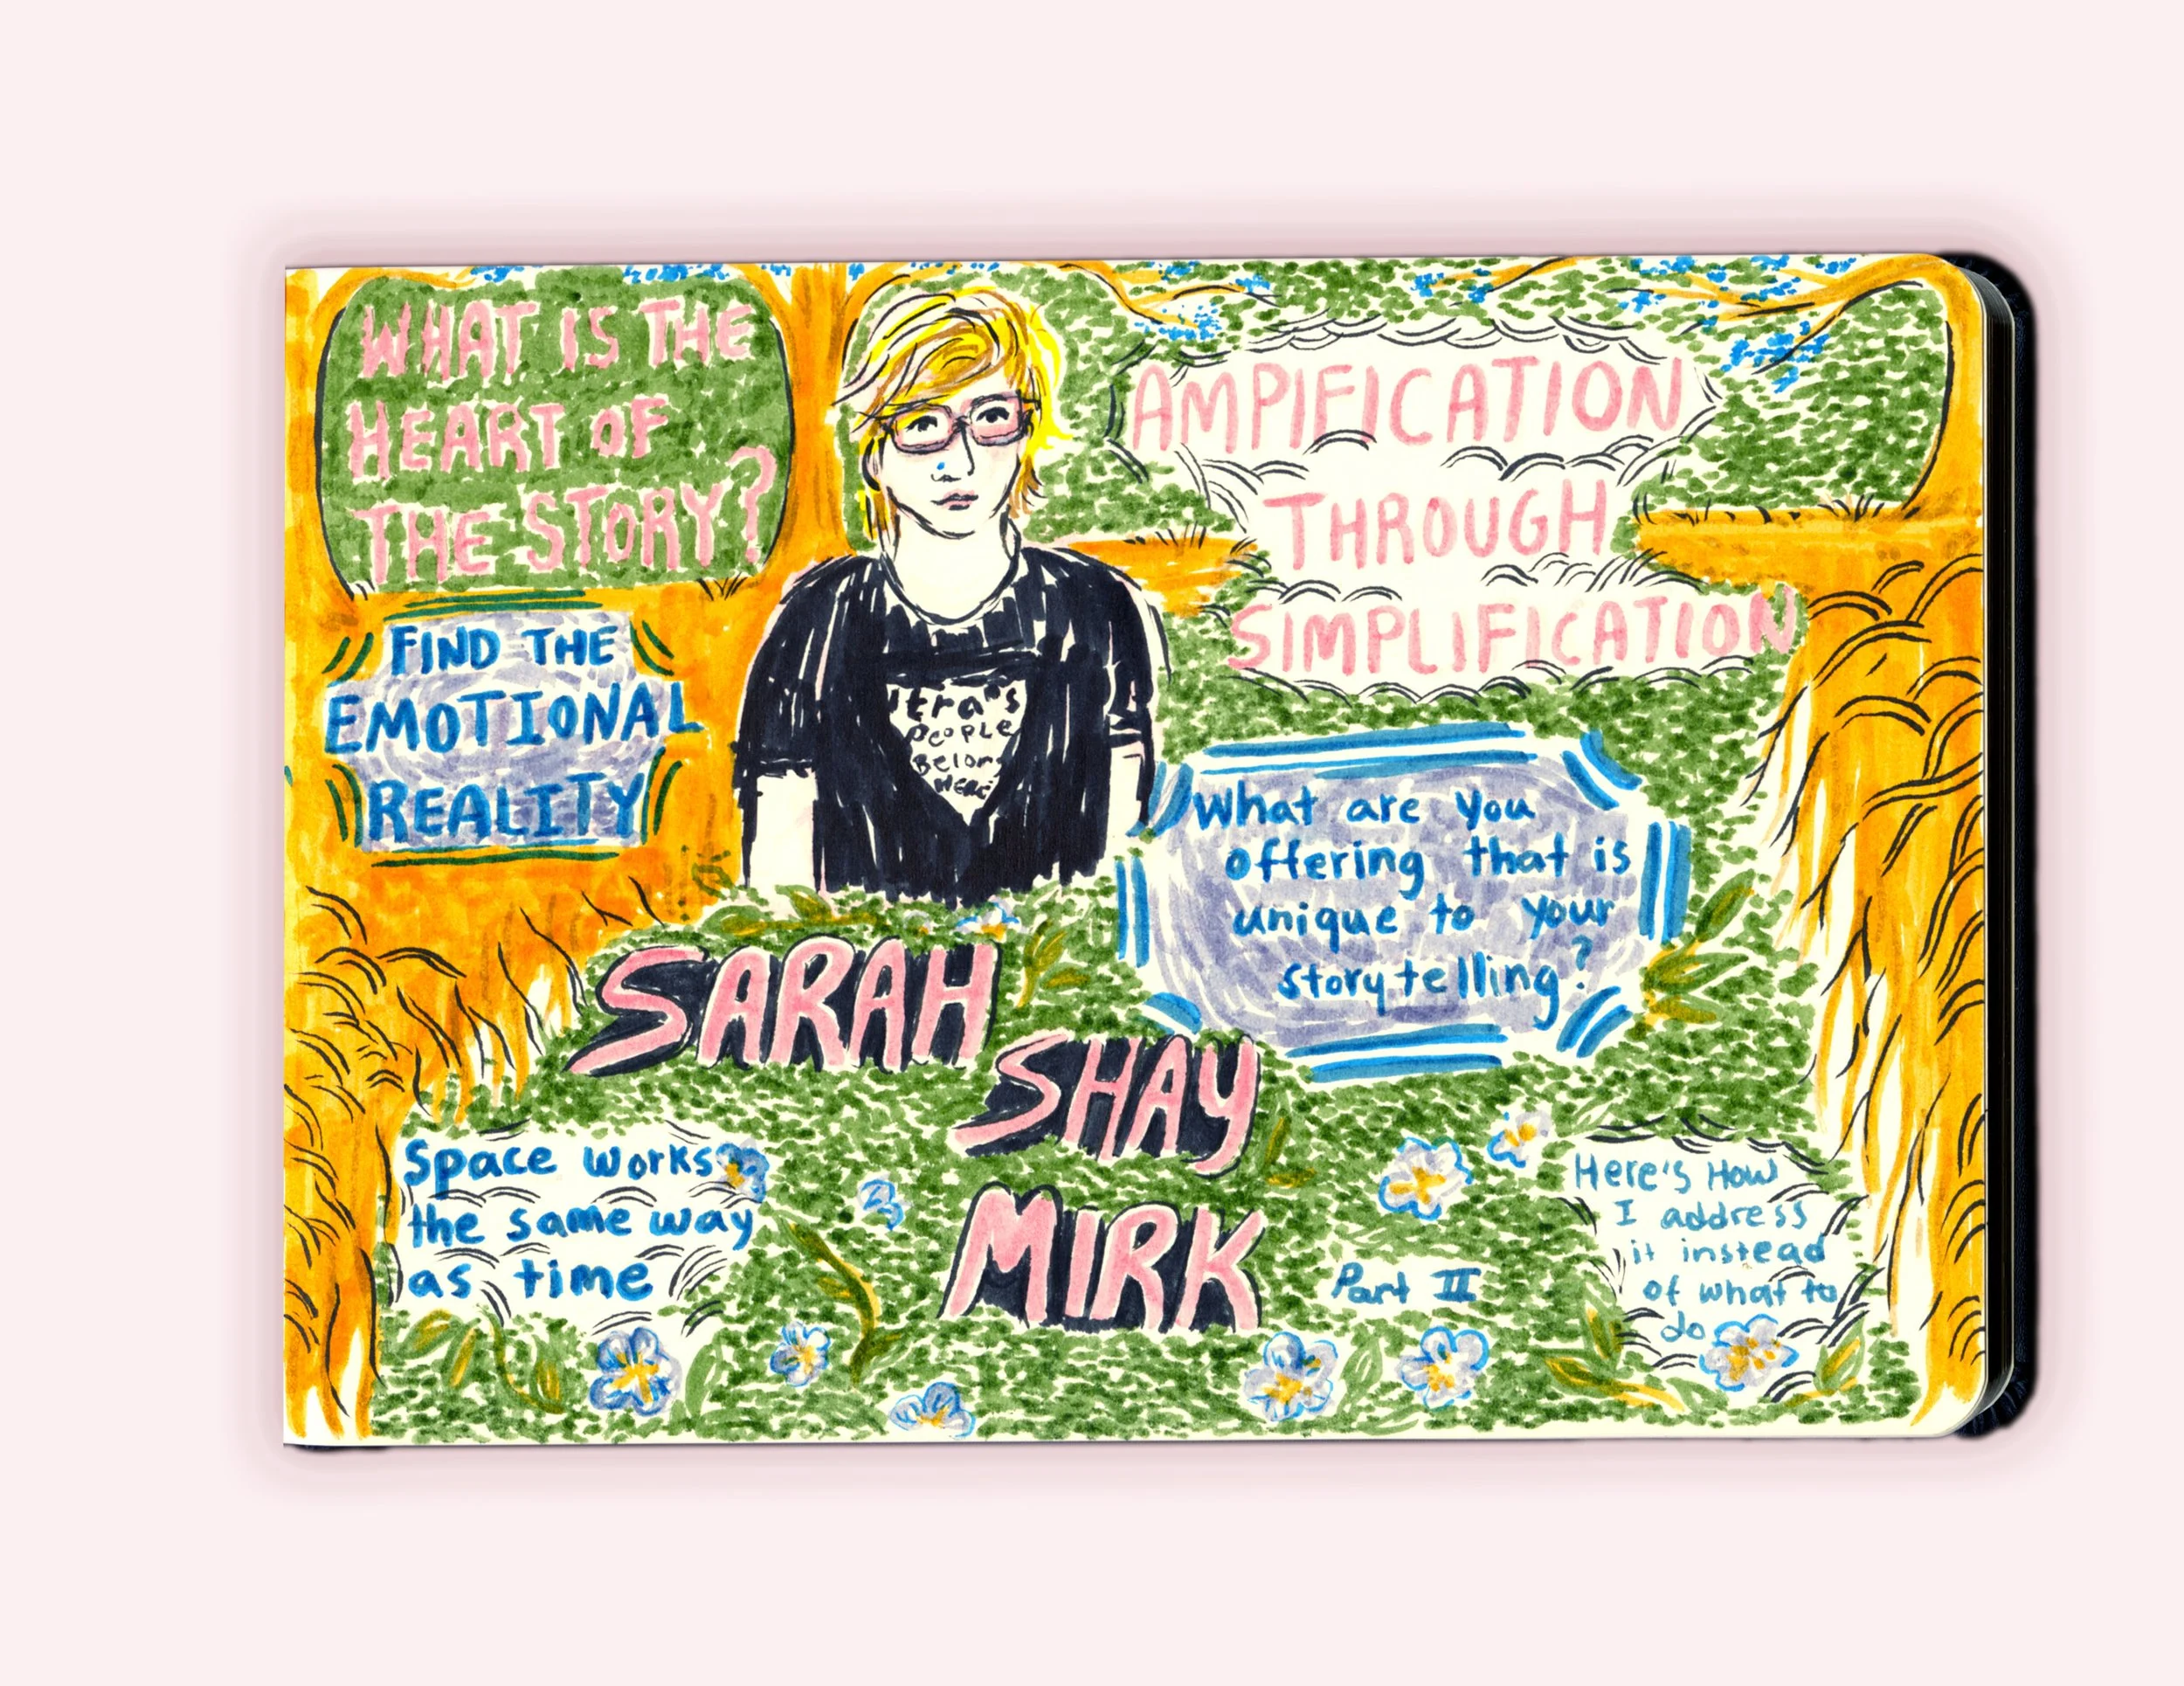 WHAT IS THE
HEART OF
THE STORY?
FIND THE
EMOTIONAL
REALITY
AMPIFICATION
THROUGH
SIMPLIFICATION
People
Belon
Here
What are you
offering that is
unique to your
storytelling?
SARAH
SHAY
MIRK
Space works
the same way
as time
Part III
Here's How
I address
it instead
of what to
do